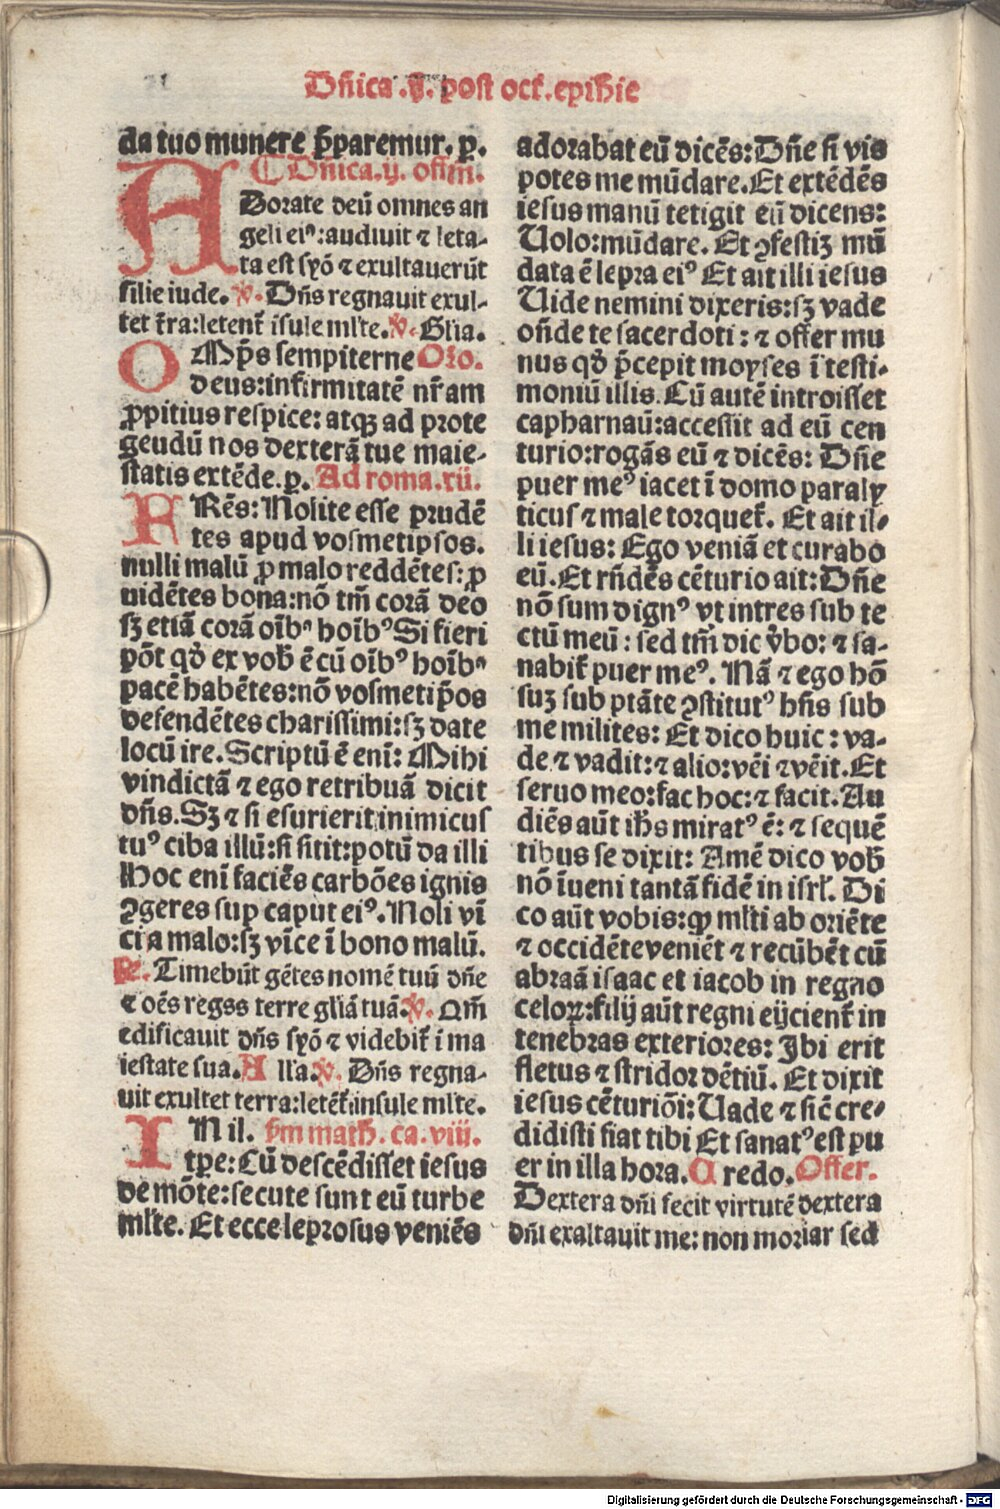 Dñica .ij. post oct̃. epiħie
da tuo munere p̃paremur. ꝑ.
⸿ Dñica .ij. offm̃.
ADorate deū omnes an
geli eiꝰ: audiuit ⁊ leta-
ta est syō ⁊ exultauerūt
filie iude. ℣. Dñs regnauit exul-
tet t̃ra: letent̃ isule ml̃te. ℣. Glia.
OMp̃s sempiterne Oro.
deus: infirmitatē nr̃am
ꝓpitius respice: atqꝫ ad prote
geudū nos dexterā tue maie-
statis extēde. ꝑ. Ad roma. xii.
FRēs: Nolite esse prudē
tes apud vosmetipsos.
nulli malū ꝓ malo reddētes: ꝓ
uidētes bona: nō tm̄ corā deo
sꝫ etiā corā oībꝰ hoībꝰ Si fieri
pōt qđ ex vob̄ ē cū oībꝰ hoībꝰ
pacē habētes: nō vosmetip̄os
defendētes charissimi: sꝫ date
locū ire. Scriptū ē eni: Mihi
vindictā ⁊ ego retribuā dicit
dñs. Sꝫ ⁊ si esurierit inimicus
tuꝰ ciba illū: si sitit: potū da illi
Hoc eni faciēs carbōes ignis
ꝯgeres sup caput eiꝰ. Noli vī
ci a malo: sꝫ vīce ī bono malū.
℟. Timebūt gētes nomē tuū dñe
⁊ oēs regss terre gliā tuā. ℣. Qm̄
edificauit dñs syō ⁊ videbit̃ i ma
iestate sua. Alla. ℣. Dñs regna-
uit exultet terra: letēt̃ insule ml̃te.
IN il. s̃m math̄. ca. viij.
tpe: Cū descēdisset iesus
de mōte: secute sunt eū turbe
ml̃te. Et ecce leprosus veniēs
adorabat eū dicēs: Dñe si vis
potes me mūdare. Et extēdēs
iesus manū tetigit eū dicens:
Uolo: mūdare. Et ꝯfestiꝫ mū
data ē lepra eiꝰ Et ait illi iesus
Uide nemini dixeris: sꝫ vade
oñde te sacerdoti: ⁊ offer mu
nus qđ p̃cepit moyses ī testi-
moniū illis. Cū autē introisset
capharnaū: accessit ad eū cen
turio: rogās eū ⁊ dicēs: Dñe
puer meꝰ iacet ī domo paraly
ticus ⁊ male torquet̃. Et ait il-
li iesus: Ego veniā et curabo
eū. Et rñdēs cēturio ait: Dñe
nō sum dignꝰ vt intres sub te
ctū meū: sed tm̄ dic v̄bo: ⁊ sa-
nabit̃ puer meꝰ. Nā ⁊ ego hō
suꝫ sub ptāte ꝯstitutꝰ hñs sub
me milites: Et dico huic: va-
de ⁊ vadit: ⁊ alio: vēi ⁊ vēit. Et
seruo meo: fac hoc: ⁊ facit. Au
diēs aūt iħs miratꝰ ē: ⁊ sequē
tibus se dixit: Amē dico vob̄
nō īueni tantā fidē in isrl̄. Di
co aūt vobis: ꝙ ml̃ti ab oriēte
⁊ occidēte veniēt ⁊ recūbēt cū
abraā isaac et iacob in regno
celoꝝ: filij aūt regni eijcient̃ in
tenebras exteriores: Ibi erit
fletus ⁊ stridor dētiū. Et dixit
iesus cēturiōi: Uade ⁊ sic̄ cre-
didisti fiat tibi Et sanatꝰ est pu
er in illa hora. Credo. Offer.
Dextera dñi fecit virtutē dextera
dñi exaltauit me: non moriar sed
Digitalisierung gefördert durch die Deutsche Forschungsgemeinschaft - DFG